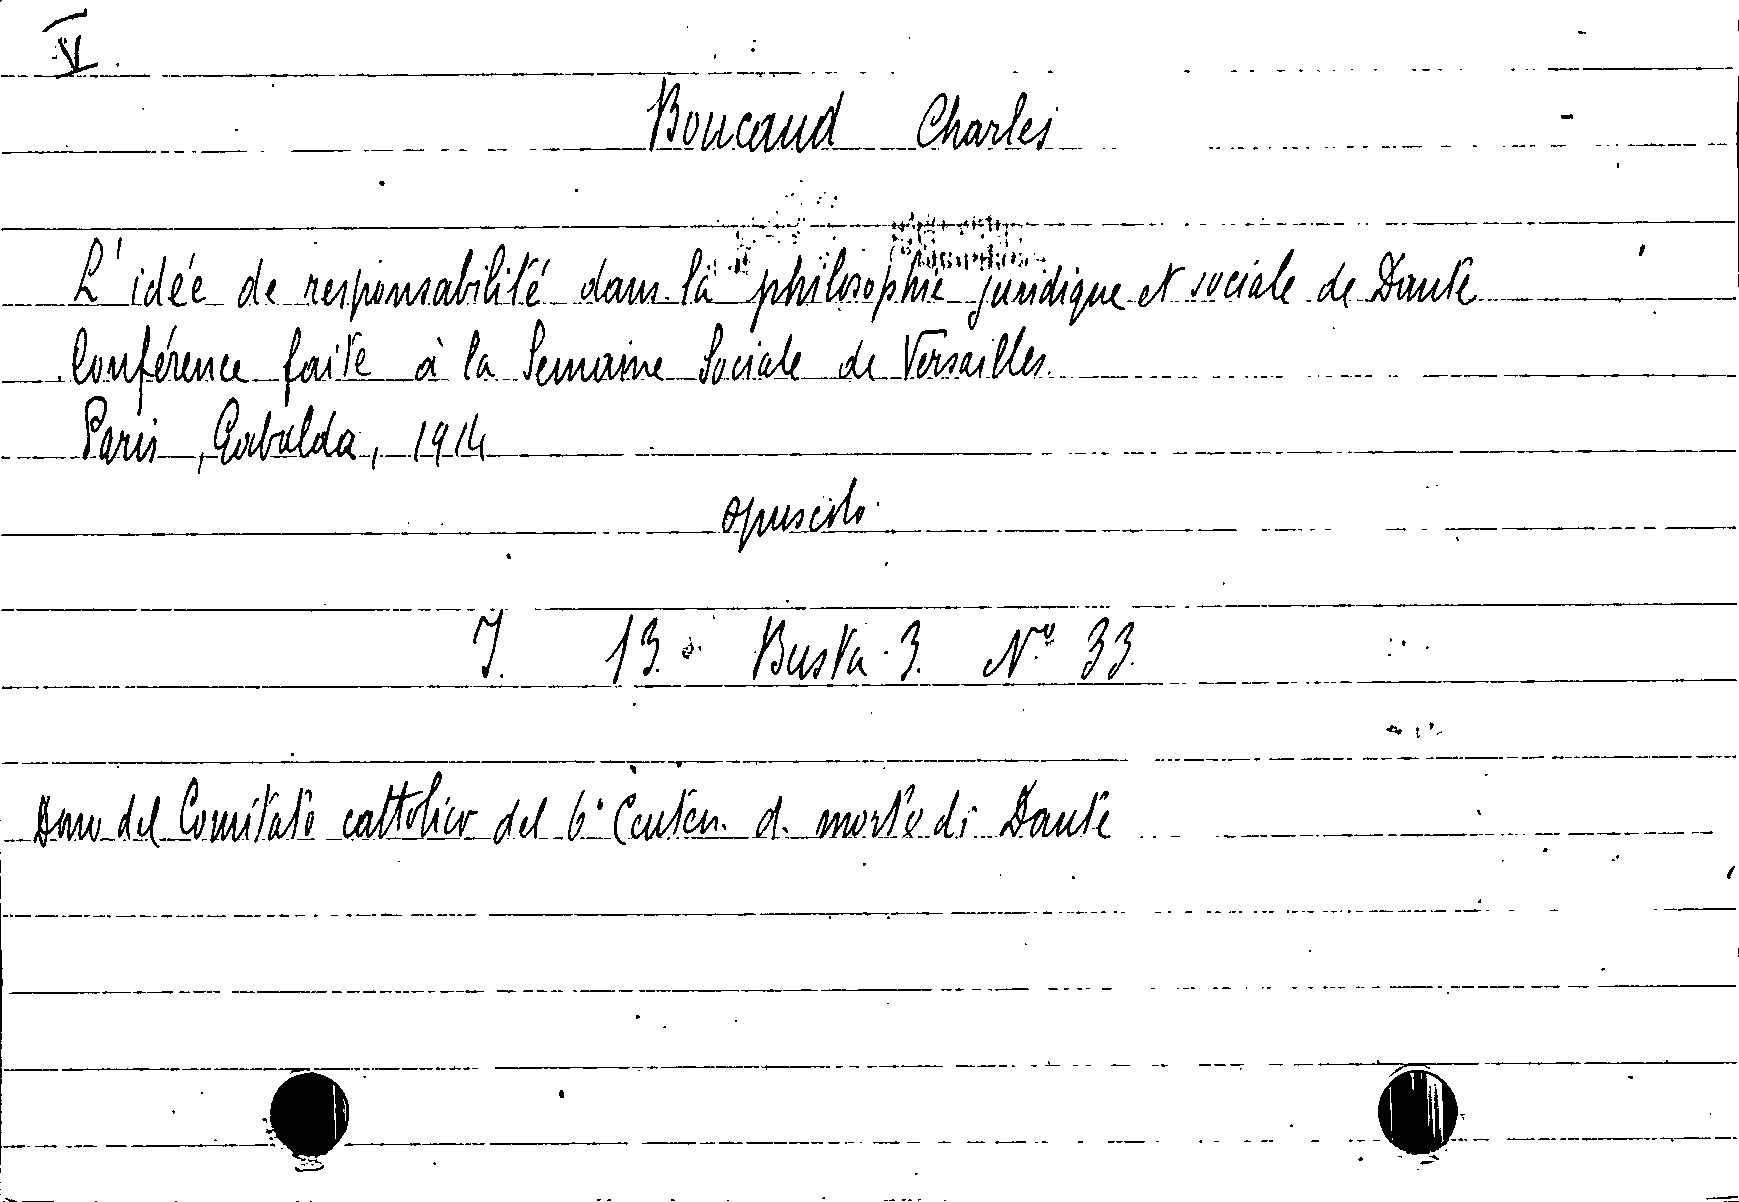 V
Boucaud Charles
L'idée de responsabilité dans la philosophie juridique et sociale de Dante
Conférence faite à la Semaine Sociale de Versailles
Paris, Gabalda, 1914
opuscolo
I. 13. Busta 3. Nº 33.
Dono del Comitato cattolico del 6° Centen. d. morte di Dante